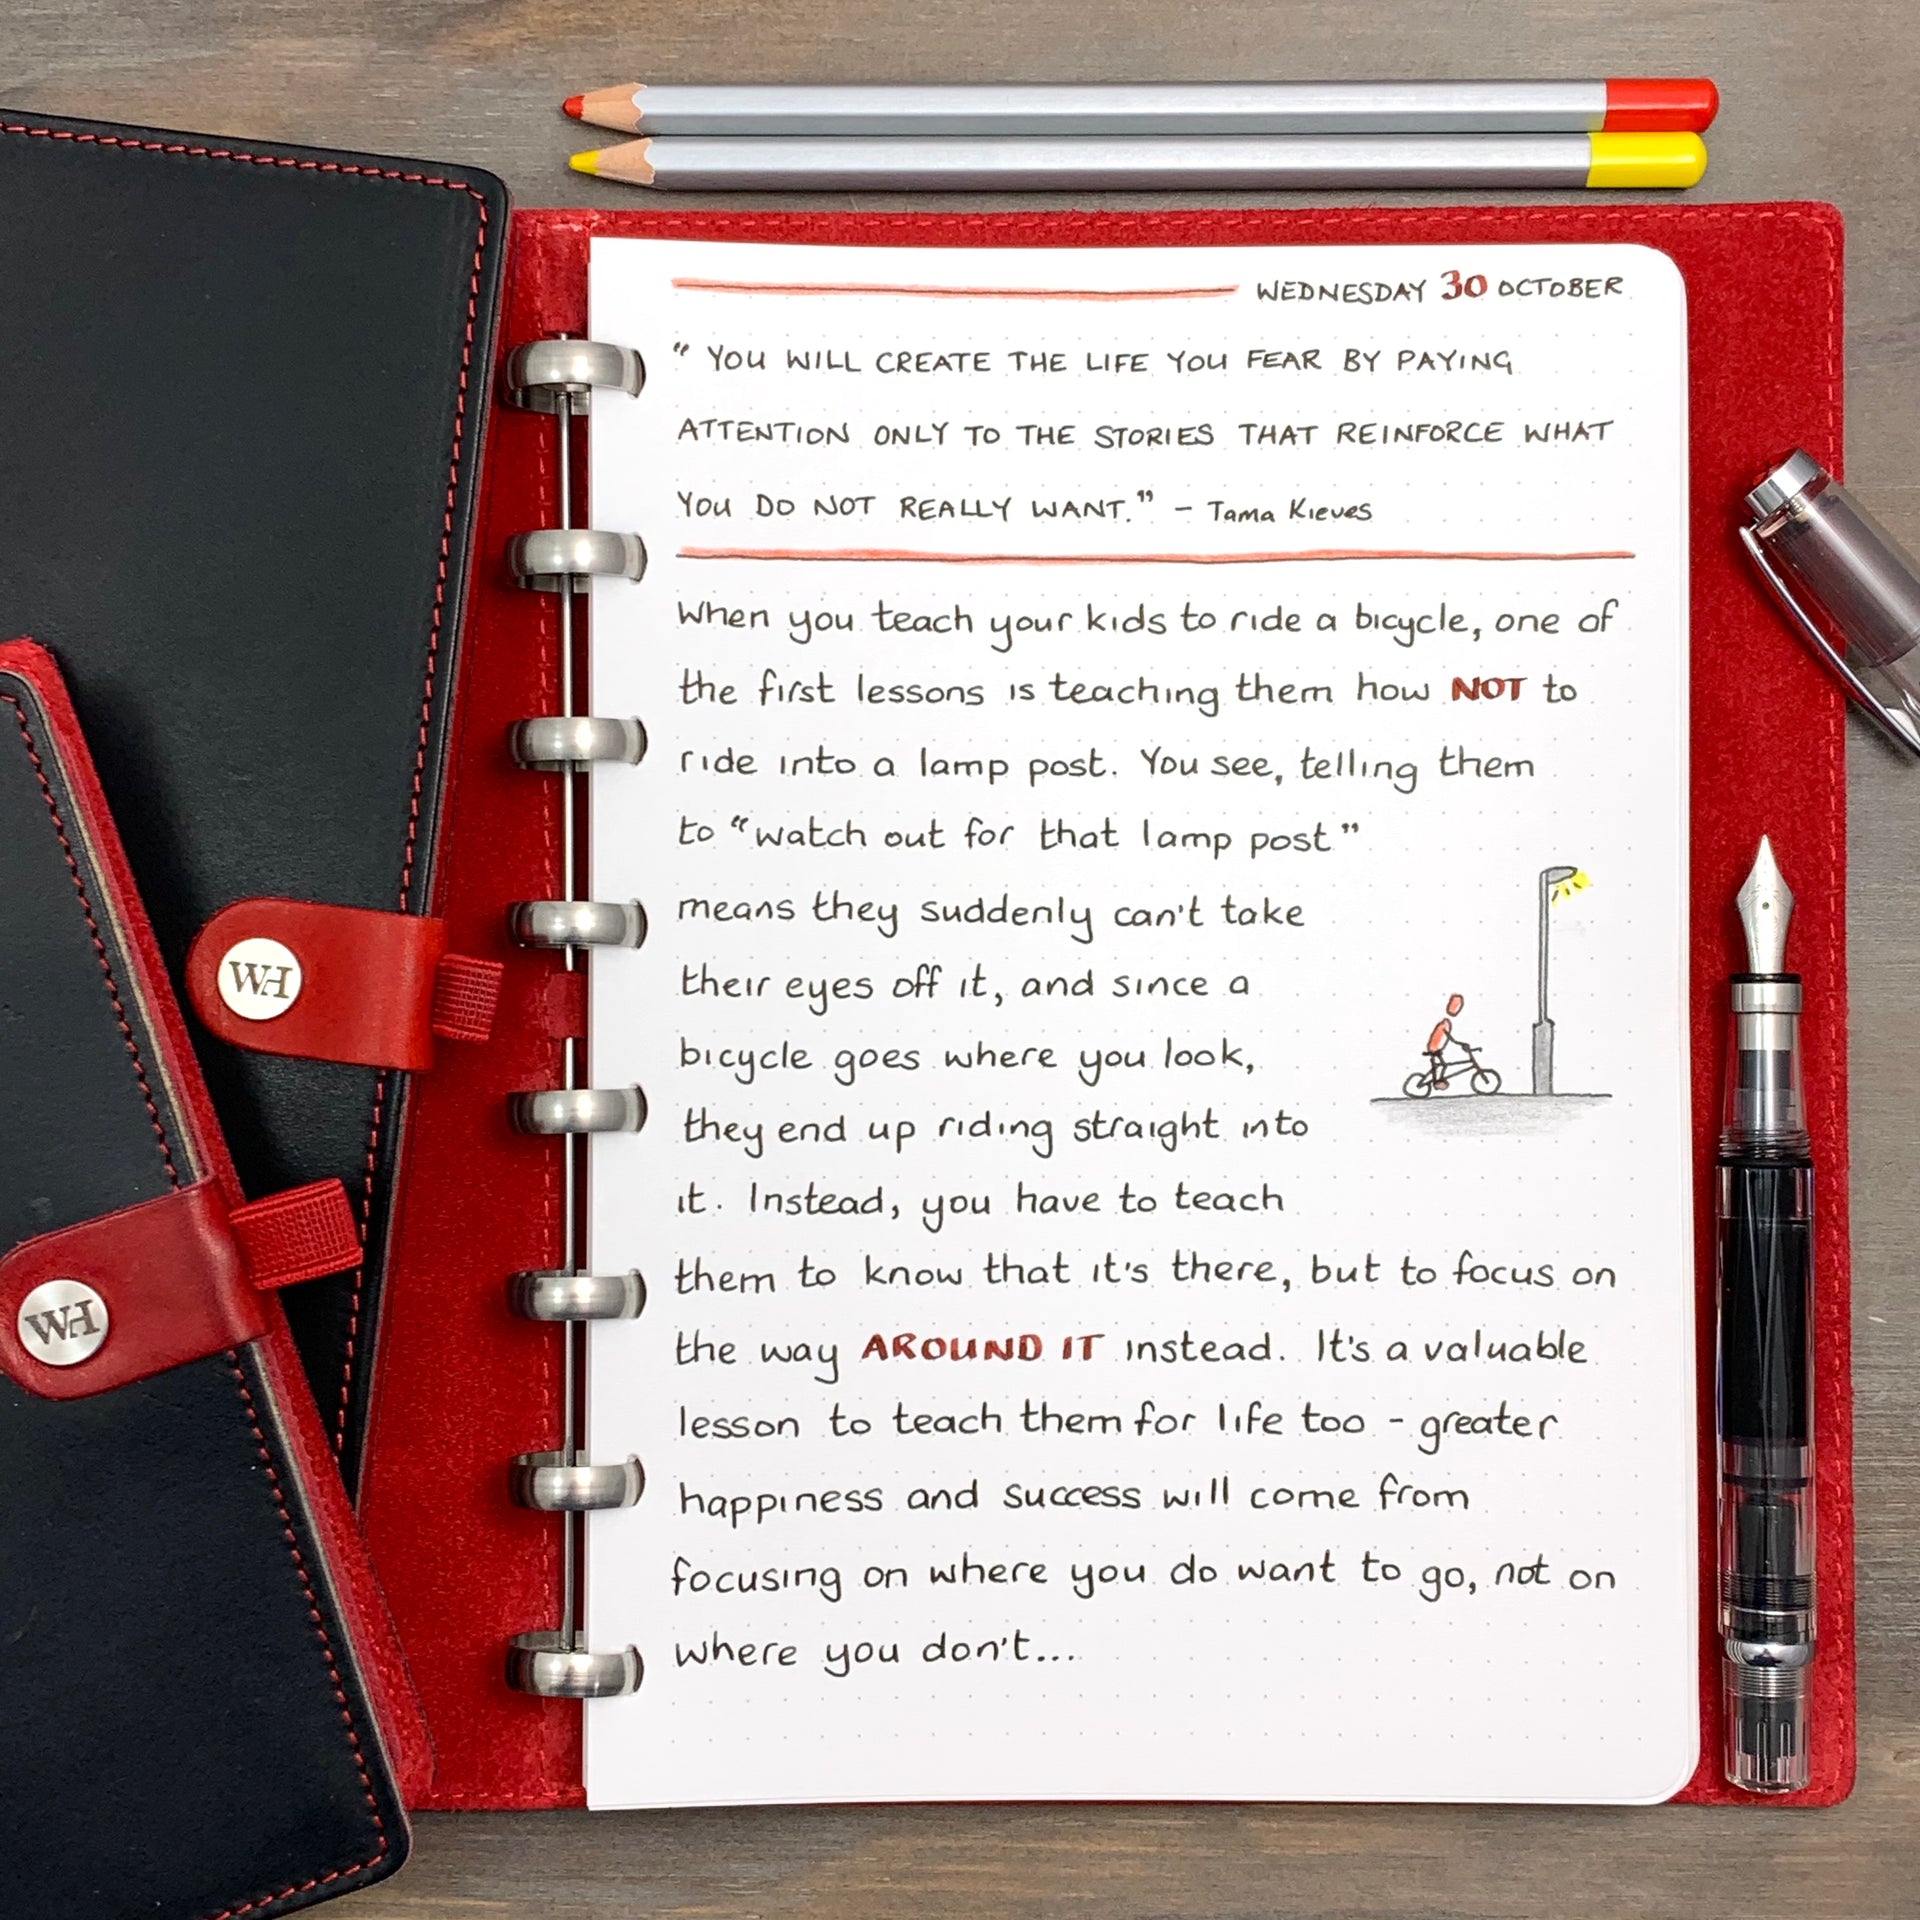 WEDNESDAY 30 OCTOBER
“ YOU WILL CREATE THE LIFE YOU FEAR BY PAYING
ATTENTION ONLY TO THE STORIES THAT REINFORCE WHAT
YOU DO NOT REALLY WANT.” - Tama Kieves
When you teach your kids to ride a bicycle, one of
the first lessons is teaching them how NOT to
ride into a lamp post. You see, telling them
to “watch out for that lamp post”
means they suddenly can't take
their eyes off it, and since a
bicycle goes where you look,
they end up riding straight into
it. Instead, you have to teach
them to know that it's there, but to focus on
the way AROUND IT instead. It's a valuable
lesson to teach them for life too - greater
happiness and success will come from
focusing on where you do want to go, not on
where you don't...
WH
WH